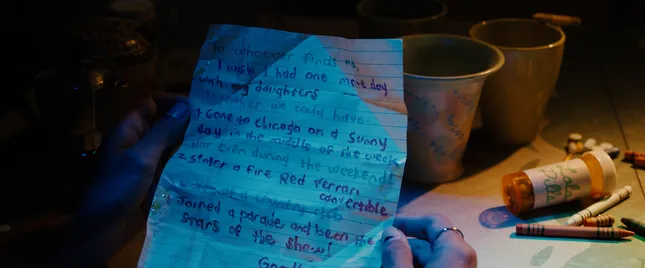 To whoever finds me,
I wish I had one more day
with my daughters
Together we could have:
1 Gone to Chicago on a sunny
day in the middle of the week
Not even during the weekend!
2 a fire Red Ferrari
convertible
a country club
Joined a parade and been the
stars of the show!